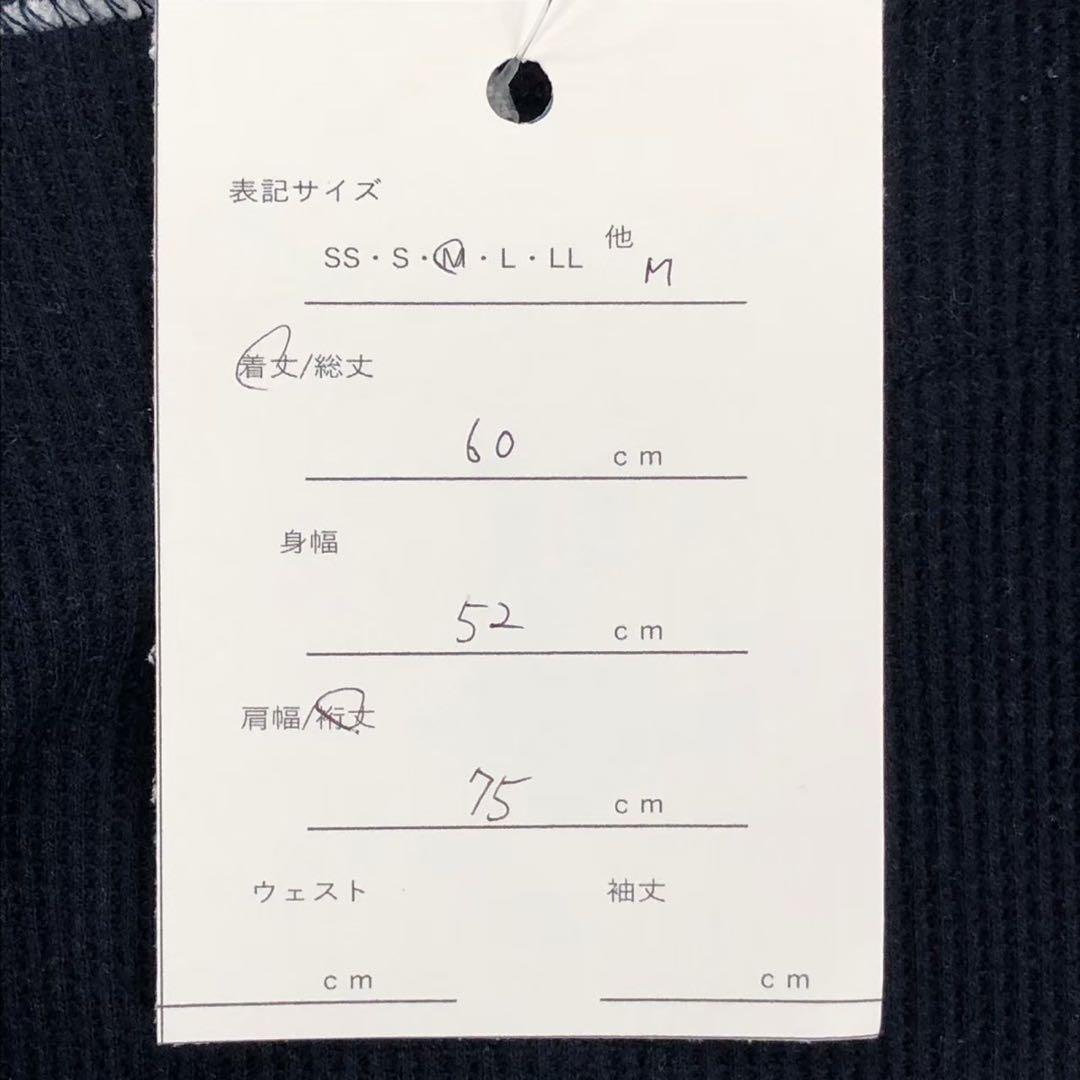 表記サイズ
SS・S・M・L・LL 他 M
着丈/総丈
60 cm
身幅
52 cm
肩幅/裄丈
75 cm
ウェスト 袖丈
cm cm